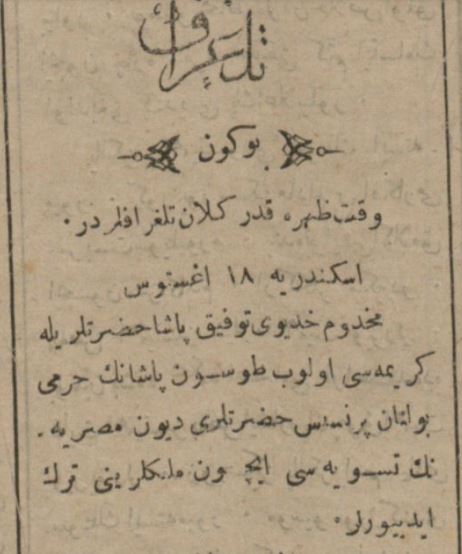 تلغراف
بوكون
وقت ظهره قدر كلان تلغرافلردر.
اسكندريه ١٨ اغستوس
مخدوم خديوى توفيق پاشا حضرتلريله
كريمه‌سى اولوب طوسون پاشانك حرمى
بولنان پرنسس حضرتلرى ديون مصريه.
نك تسويه سى ايچون ملكلرينى ترك
ايدييورلر.